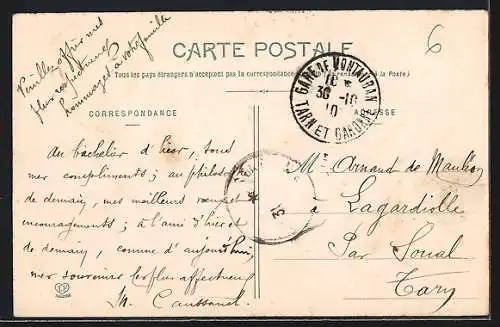 Veuillez offrir mes
plus respectueux
hommages à votre famille
6
CARTE POSTALE
Tous les pays étrangers n'acceptent pas la correspondance
la Poste)
GARE DE MONTAUBAN
TARN ET GARONNE
30 -10
10
CORRESPONDANCE
ADRESSE
Au bachelier d'hier, tous
mes compliments ; au philosophe
de demain, mes meilleurs
encouragements ; à l'ami d'hier et
de demain, comme d'aujourd'hui,
mon souvenir le plus affectueux
M. Caussanel.
Mr Armand de Maulbon
à Lagardiolle
Par Soual
Tarn